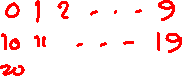 0 1 2 - - - 9
10 11 - - - 19
20